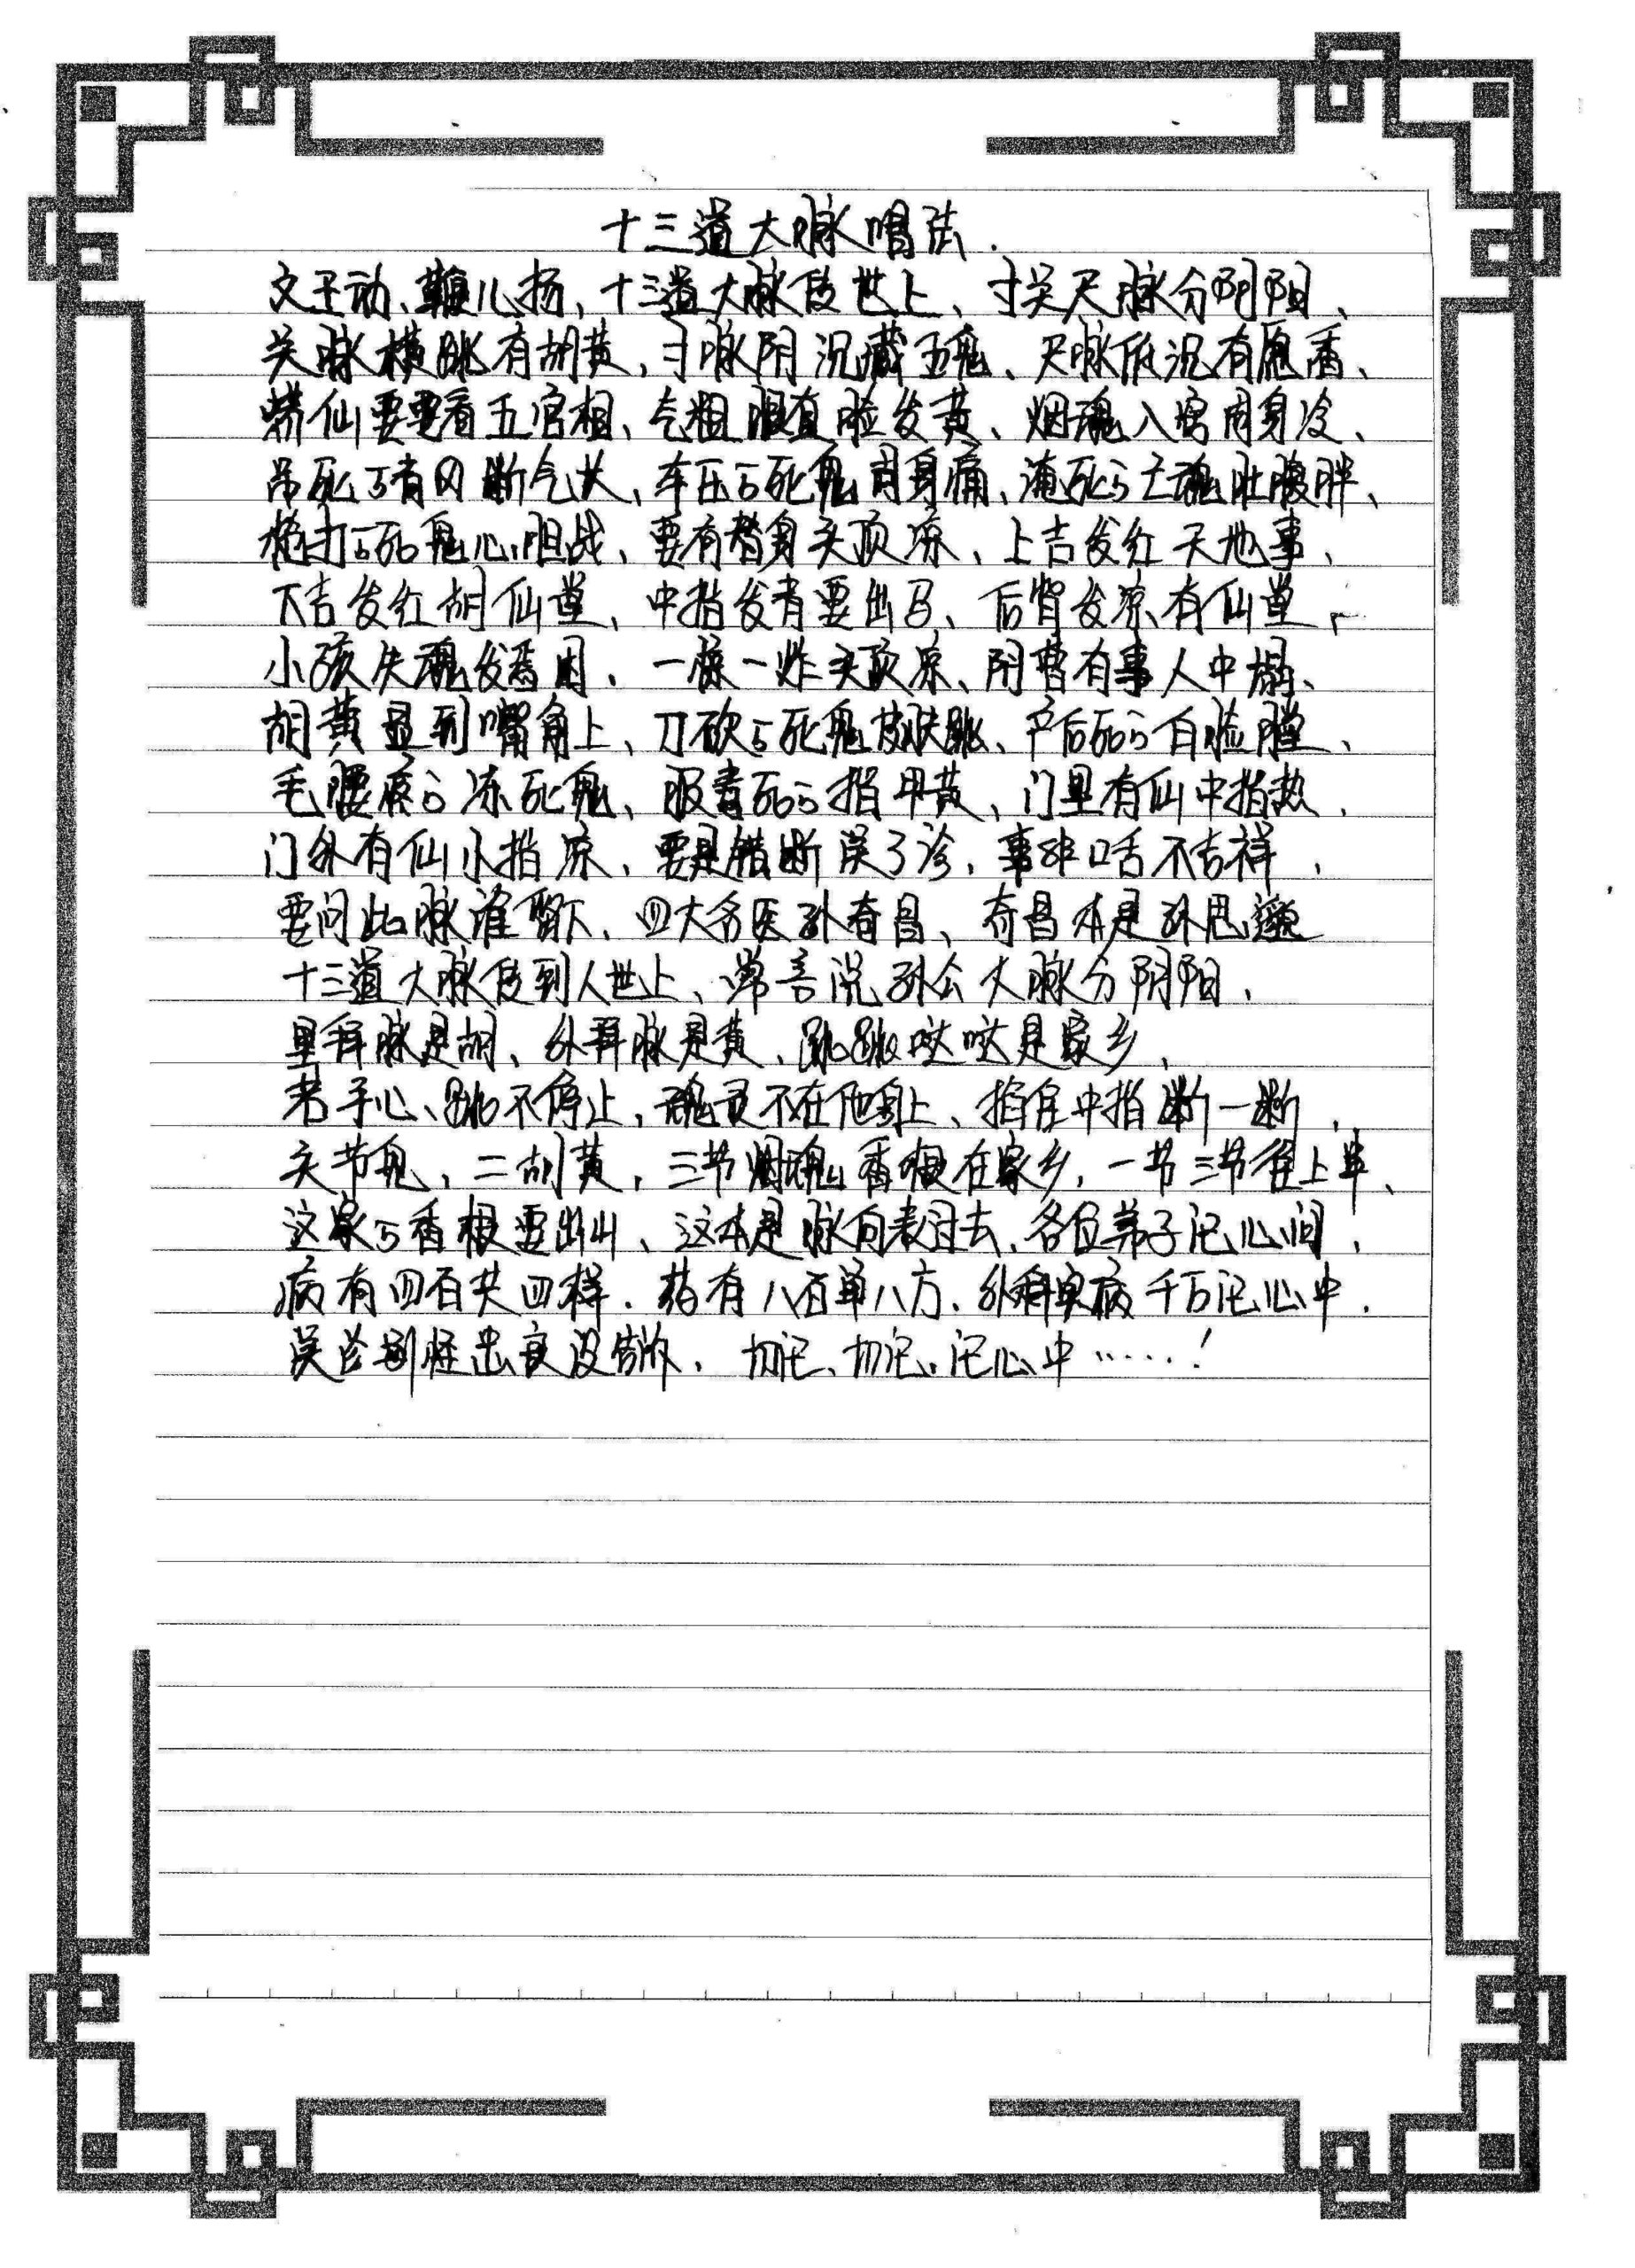 十三道大脉唱法.
文王动、鞭儿扬、十三道大脉传世上、寸关尺脉分阴阳、
关脉横跳有胡黄、寸脉阴沉藏五鬼、尺脉低沉有愿香、
蟒仙要看五官相、气粗眼直脸发黄、烟魂入窍周身冷、
吊死的断气、车压的死鬼周身痛、淹死的亡魂肚腹胖、
枪打的死鬼心胆战、要有替身头顶凉、上吉发红天地事、
下吉发红胡仙堂、中指发青要出马、后背发凉有仙堂、
小孩失魂发焉困、一惊一炸头顶凉、阴曹有事人中塌、
胡黄显到嘴角上、刀砍的死鬼皮肤跳、产后死的白脸膛、
毛腰疼的冻死鬼、服毒死的指甲黄、门里有仙中指热、
门外有仙小指凉、要是错断误了诊、事非口舌不吉祥、
要问此脉谁留下、四大名医孙奇昌、奇昌本是孙思邈
十三道大脉传到人世上、常言说孙公大脉分阴阳、
里拜脉是胡、外拜脉是黄、跳跳哒哒是家乡、
若手心、跳不停止、魂灵不在他身上、掐住中指断一断、
头节鬼、二胡黄、三节烟魂香根在家乡、一节三节往上串、
这家的香根要出山、这本是脉向表过去、各位弟子记心间、
病有四百共四样、药有八百单八方、外科实病千万记心中.
误诊别怪出良没传你、切记、切记、记心中……!